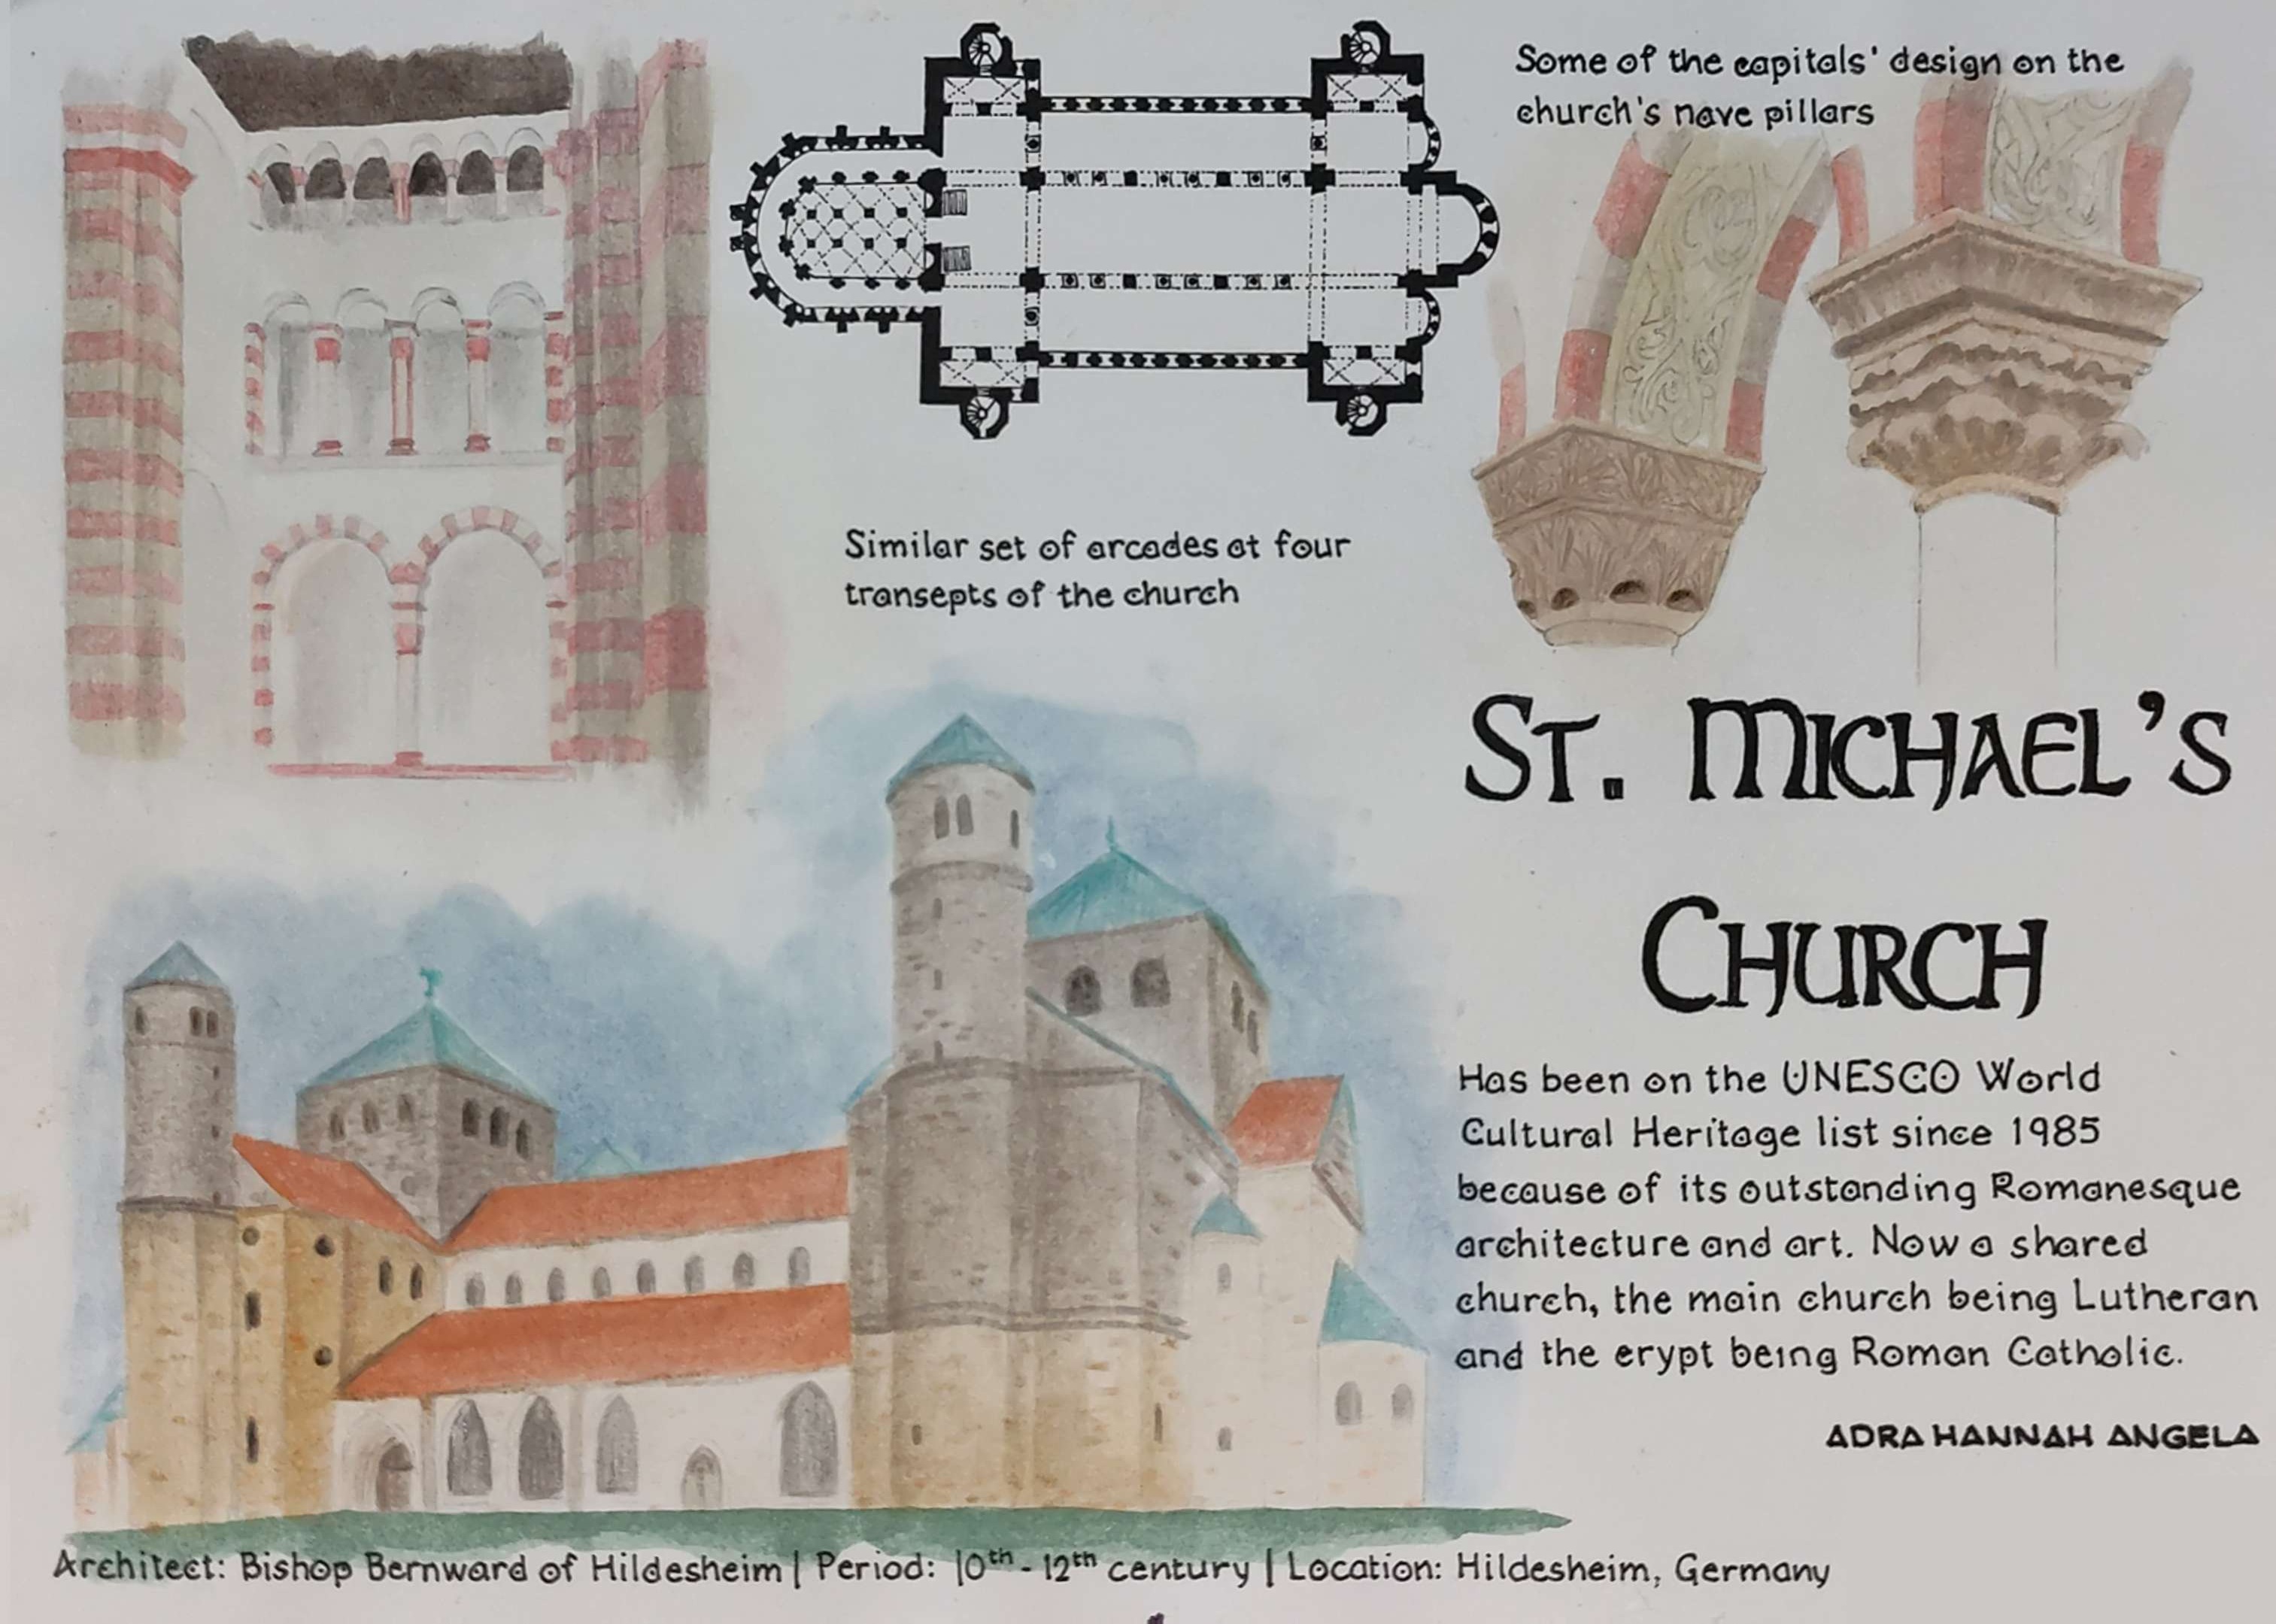 Some of the capitals' design on the
church's nave pillars
Similar set of arcades at four
transepts of the church
ST. MICHAEL'S
CHURCH
Has been on the UNESCO World
Cultural Heritage list since 1985
because of its outstanding Romanesque
architecture and art. Now a shared
church, the main church being Lutheran
and the crypt being Roman Catholic.
ADRA HANNAH ANGELA
Architect: Bishop Bernward of Hildesheim | Period: 10th - 12th century | Location: Hildesheim, Germany